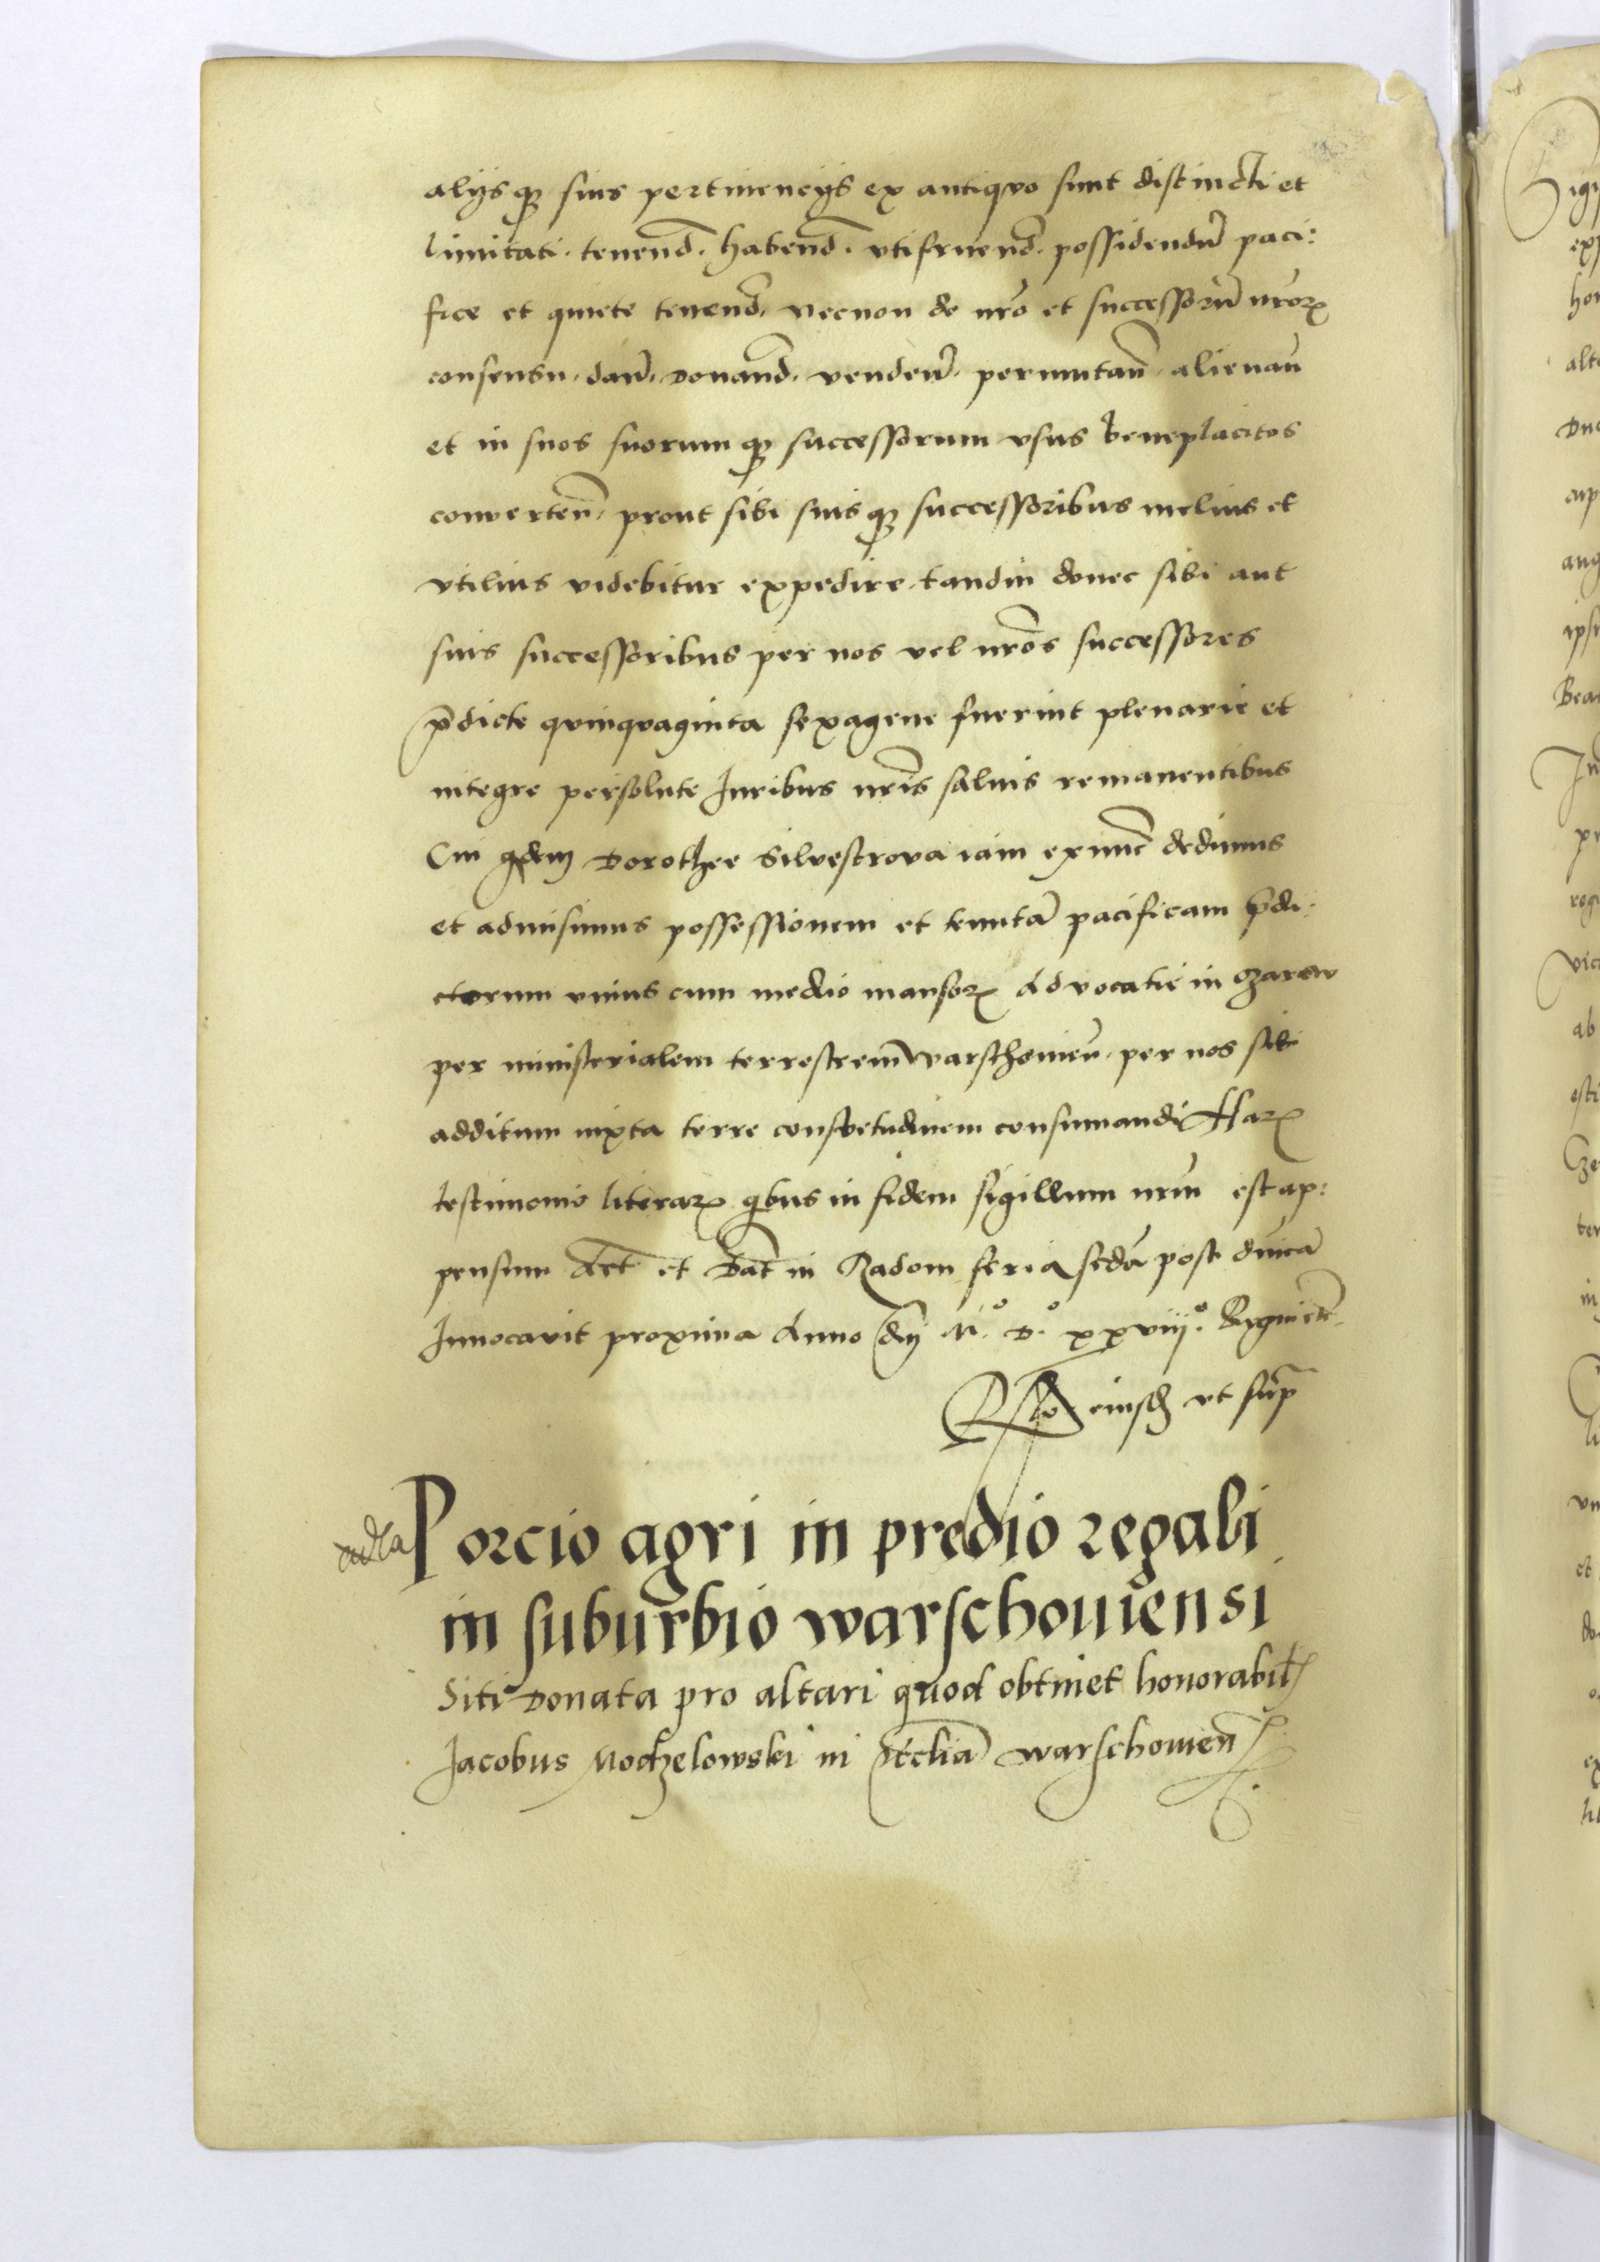 alijsq suis pertinencijs ex antiquo sunt distincti et
limitati . tenend . habend . vtifruend . possidendu paci:
fice et quiete tenend, necnon de nro et successoru nror
consensu . dan . donand . venden . permutan . alienan
et in suos suorumq successorum vsus beneplacitos
converten, prout sibi suisq successoribus melius et
vtilius videbitur expedire. tandiu donec sibi aut
suis successoribus per nos vel nros successores
pdicte quinquaginta sexagene fuerint plenarie et
integre persolute Juribus nris saluis remanentibus
Cui qdem Dorothee Silvestrova iam exnunc dedimus
et admisimus possessionem et tenuta pacificam pdi:
ctorum vnius cum medio mansor Advocatie in Czarew
per ministerialem terrestrem warschouien . per nos sibi
additum iuxta terre consvetudinem consumandi Har
testimonio literar qbus in fidem sigillum nrm est ap:
pensum Act et Dat in Radom feria scda post dnica
Innocavit proxima Anno dnj M.o D.o xxviij.o Regni etc.
Rlo eiusd vt sup
Porcio agri in predio regali
in suburbio warschouiensi
Siti Donata pro altari quod obtinet honorabil
Jacobus Modzelowski in Ecclia warschouien